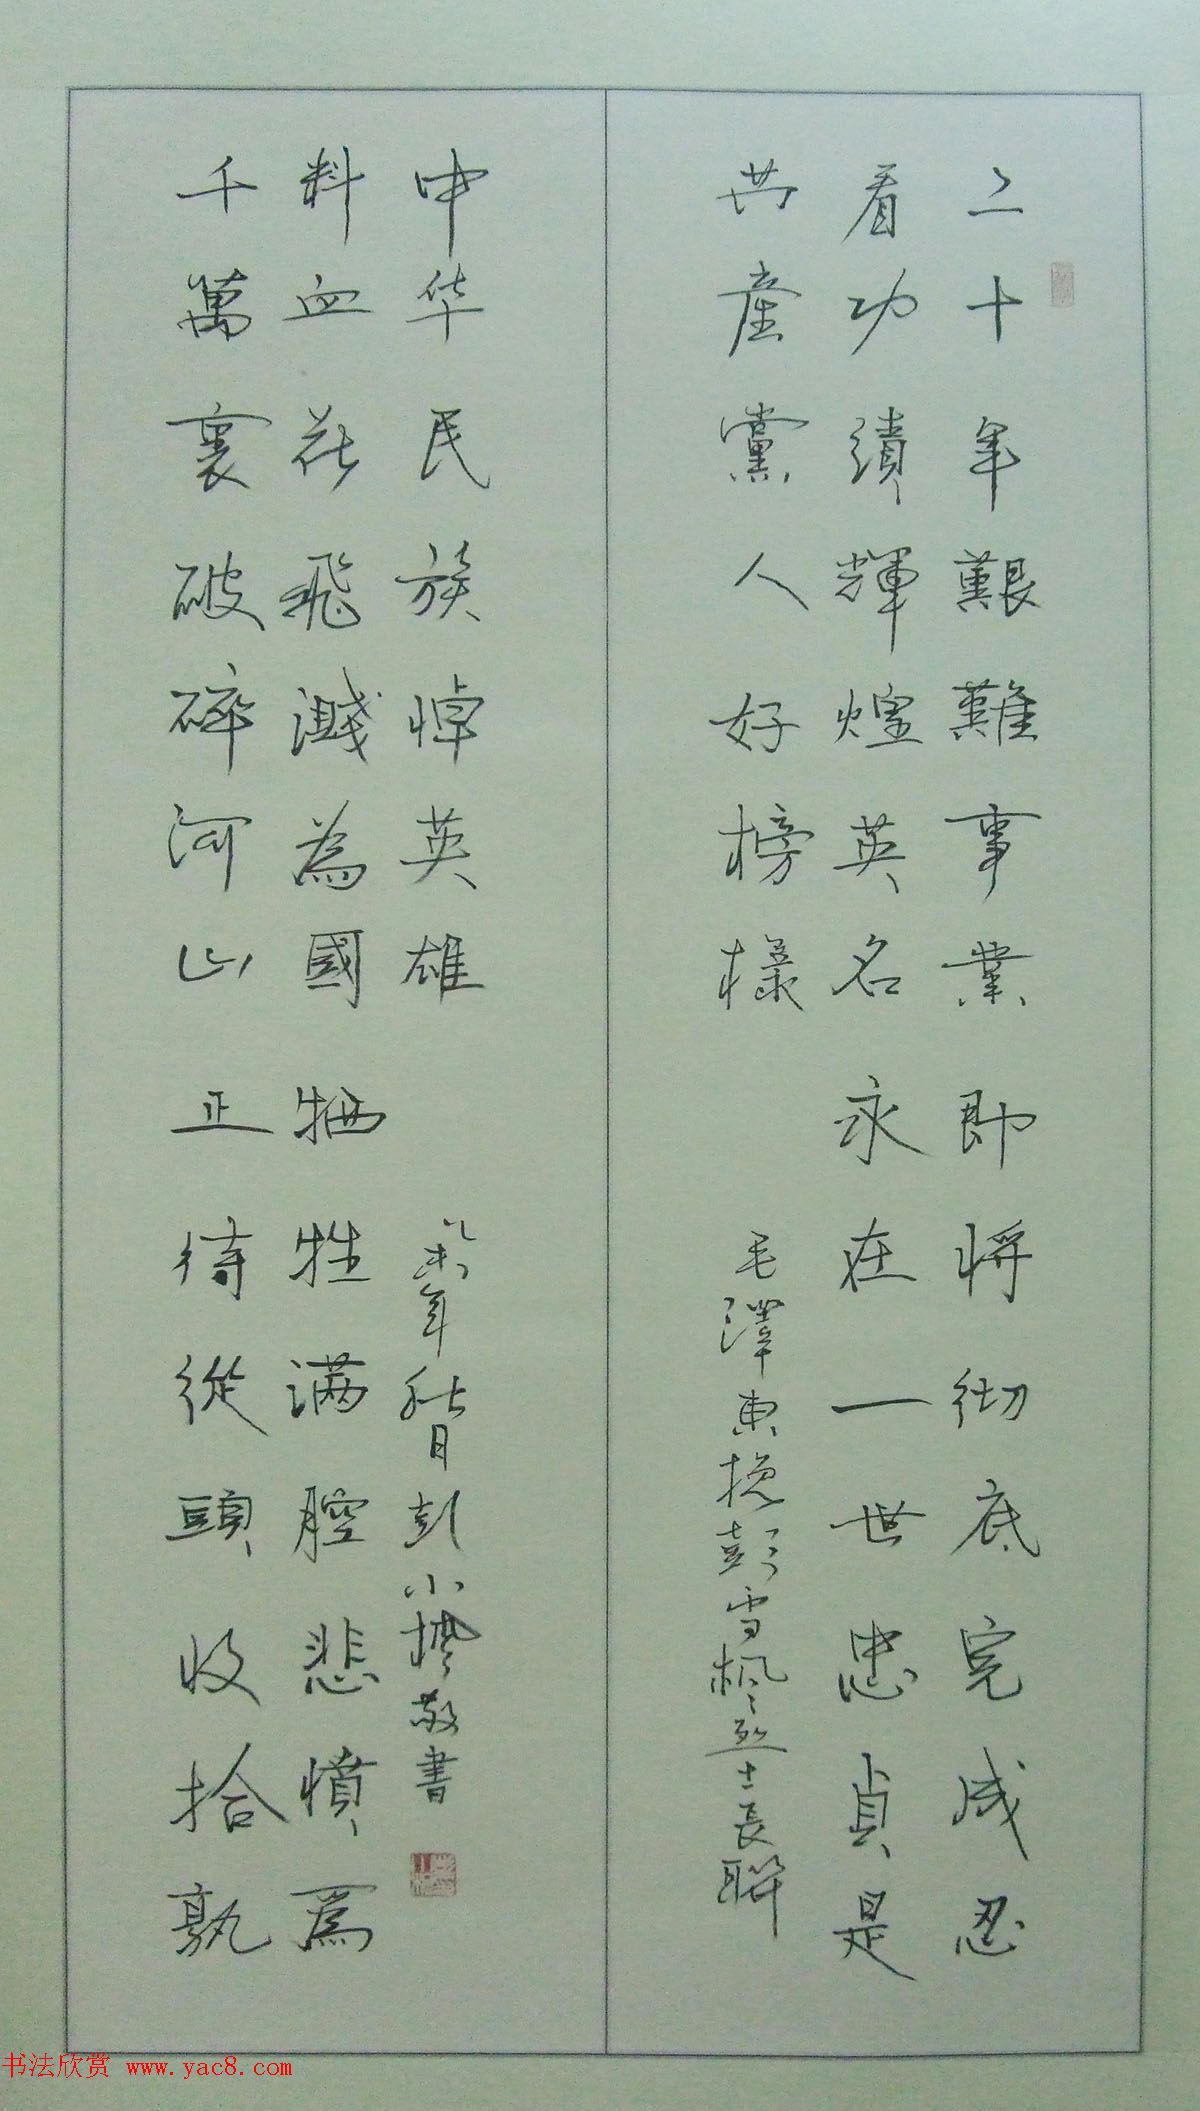 二十年艱難事業即將彻底完成忍
看功績輝煌英名永在一世忠貞是
共產黨人好榜樣
毛澤東挽彭雪楓烈士長聯
千萬裏破碎河山正待從頭收拾孰
料血花飛濺為國牺牲满腔悲憤爲
中华民族悼英雄
乙未年秋月彭小敬書
书法欣赏 www.yac8.com